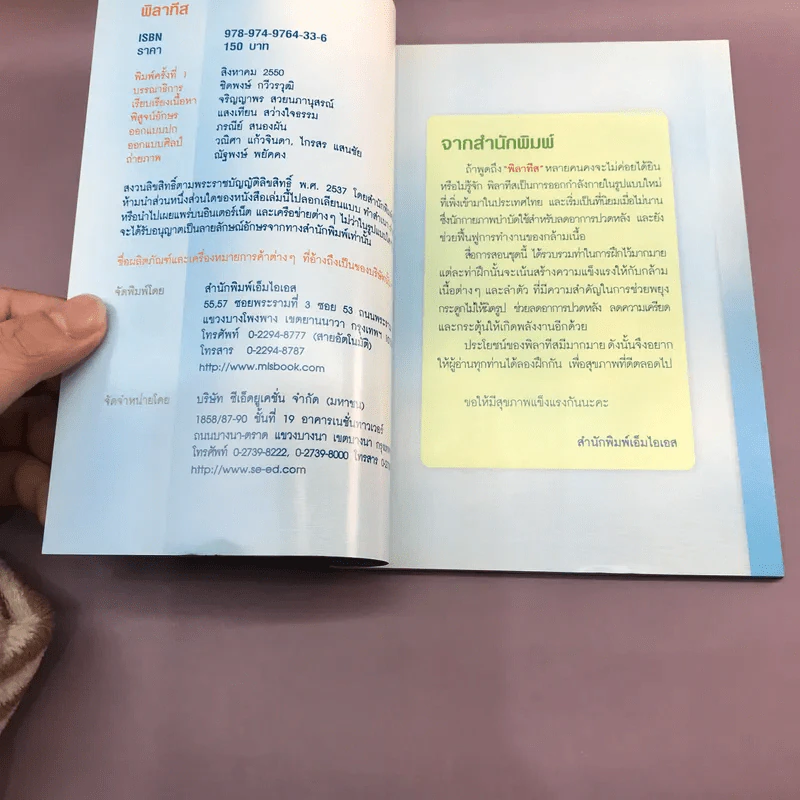 พิลาทีส
ISBN 978-974-9764-33-6
ราคา 150 บาท
พิมพ์ครั้งที่ 1 สิงหาคม 2550
บรรณาธิการ ชิตพงษ์ กวีวรวุฒิ
เรียบเรียงเนื้อหา จริญญาพร สวยนภานุสรณ์
พิสูจน์อักษร แสงเทียน สว่างใจธรรม
ออกแบบปก ภรณีย์ สนองผัน
ออกแบบศิลป์ วณิศา แก้วจินดา, ไกรสร แสนชัย
ถ่ายภาพ ณัฐพงษ์ พยัคคง
สงวนลิขสิทธิ์ตามพระราชบัญญัติลิขสิทธิ์ พ.ศ. 2537 โดยสำนักพิมพ์
ห้ามนำส่วนหนึ่งส่วนใดของหนังสือเล่มนี้ไปลอกเลียนแบบ ทำสำเนา
หรือนำไปเผยแพร่บนอินเตอร์เน็ต และเครือข่ายต่างๆ ไม่ว่าในรูปแบบใด
จะได้รับอนุญาตเป็นลายลักษณ์อักษรจากทางสำนักพิมพ์เท่านั้น
ชื่อผลิตภัณฑ์และเครื่องหมายการค้าต่างๆ ที่อ้างถึงเป็นของบริษัท
จัดพิมพ์โดย สำนักพิมพ์เอ็มไอเอส
55,57 ซอยพระรามที่ 3 ซอย 53 ถนนพระราม
แขวงบางโพงพาง เขตยานนาวา กรุงเทพฯ
โทรศัพท์ 0-2294-8777 (สายอัตโนมัติ)
โทรสาร 0-2294-8787
http://www.misbook.com
จัดจำหน่ายโดย บริษัท ซีเอ็ดยูเคชั่น จำกัด (มหาชน)
1858/87-90 ชั้นที่ 19 อาคารเนชั่นทาวเวอร์
ถนนบางนา-ตราด แขวงบางนา เขตบางนา
โทรศัพท์ 0-2739-8222, 0-2739-8000 โทรสาร
http://www.se-ed.com
จากสำนักพิมพ์
ถ้าพูดถึง "พิลาทีส" หลายคนคงจะไม่ค่อยได้ยิน
หรือไม่รู้จัก พิลาทีสเป็นการออกกำลังกายในรูปแบบใหม่
ที่เพิ่งเข้ามาในประเทศไทย และเริ่มเป็นที่นิยมเมื่อไม่นาน
ซึ่งนักกายภาพบำบัดใช้สำหรับลดอาการปวดหลัง และยัง
ช่วยฟื้นฟูการทำงานของกล้ามเนื้อ
สื่อการสอนชุดนี้ ได้รวบรวมท่าในการฝึกไว้มากมาย
แต่ละท่าฝึกนั้นจะเน้นสร้างความแข็งแรงให้กับกล้าม
เนื้อต่างๆ และลำตัว ที่มีความสำคัญในการช่วยพยุง
กระดูกไม่ให้ผิดรูป ช่วยลดอาการปวดหลัง ลดความเครียด
และกระตุ้นให้เกิดพลังงานอีกด้วย
ประโยชน์ของพิลาทีสมีมากมาย ดังนั้นจึงอยาก
ให้ผู้อ่านทุกท่านได้ลองฝึกกัน เพื่อสุขภาพที่ดีตลอดไป
ขอให้มีสุขภาพแข็งแรงกันนะคะ
สำนักพิมพ์เอ็มไอเอส